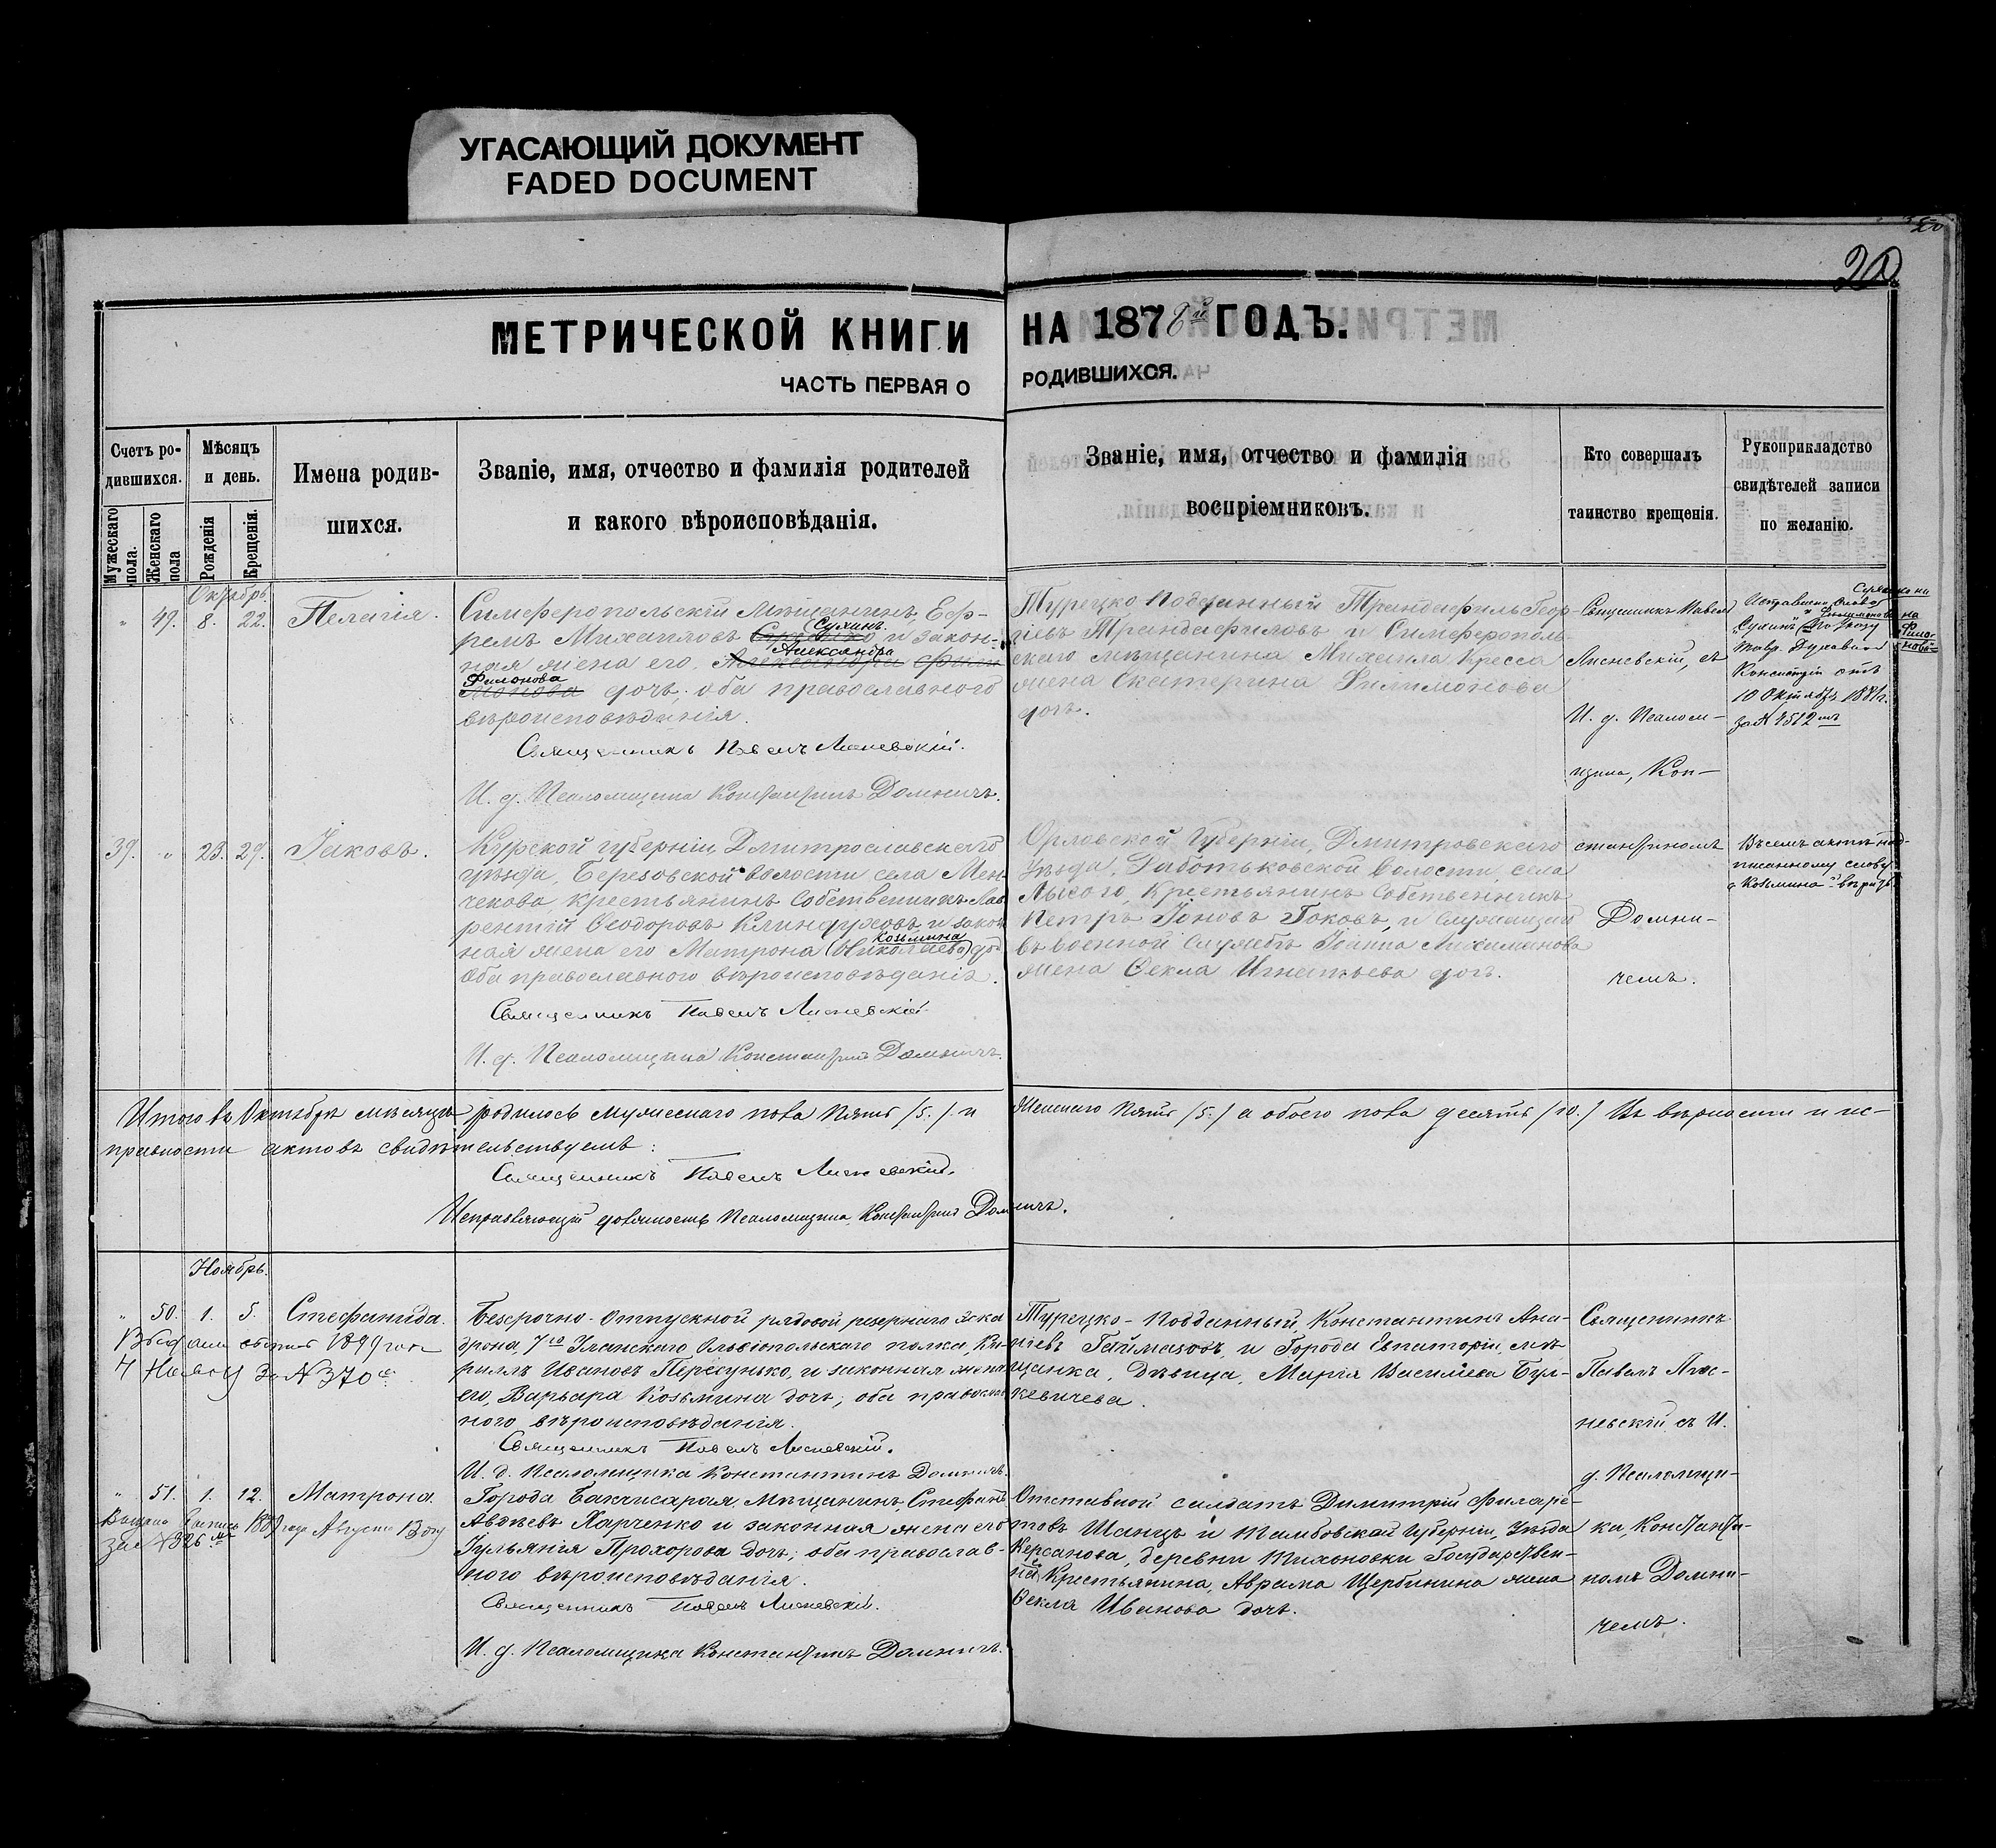 УГАСАЮЩИЙ ДОКУМЕНТ
FADED DOCUMENT
20
МЕТРИЧЕСКОЙ КНИГИ НА 1878й ГОДЪ.
ЧАСТЬ ПЕРВАЯ О РОДИВШИХСЯ.
Счетъ ро-
дившихся.
Мужескаго пола.
Женскаго пола
Мѣсяцъ
и день.
Рожденія
Крещенія.
Имена родив-
шихся.
Званіе, имя, отчество и фамилія родителей
и какого вѣроисповѣданія.
Званіе, имя, отчество и фамилія
воспріемниковъ.
Кто совершалъ
таинство крещенія.
Рукоприкладство
свидѣтелей записи
по желанію.
Октябрь
" 49. 8. 22. Пелагія.
Симферопольскій Мѣщанинъ, Еф-
ремъ Михайловъ Сухинъ и закон-
ная жена его, Александра
Филонова дочь; оба православнаго
вѣроисповѣданія.
Священникъ Павелъ Лисневскій.
И. д. Псаломщика Константинъ Домничъ.
Турецко Подданный Трандафилъ Геор-
гіевъ Трандафиловъ и Симферополь-
скаго мѣщанина Михаила Кресса
жена Екатерина Филимонова
дочь.
Священникъ Павелъ
Лисневскій, съ
И. д. Псалом-
щика, Кон-
стантиномъ
Домни-
чемъ.
Консисторіи отъ
10 Октября 1881г.
за № 4512мъ
39. " 23. 29. Іаковъ.
Курской губерніи, Дмитрославскаго
уѣзда, Березовской волости села Мен-
чекова крестьянинъ Собственникъ Лав-
рентій Ѳеодоровъ Клиндуховъ и закон-
ная жена его Матрона (Николаева) Козьмина до
Оба православнаго вѣроисповѣданія.
Священникъ Павелъ Лисневскій
И. д. Псаломщика Константинъ Домничъ.
Орловской Губерніи, Дмитровскаго
Уѣзда, Работьковской Волости, села
Лысаго, Крестьянинъ Собственникъ
Петръ Іоновъ Гоковъ, и Служащаго
въ военной Службѣ Іоанна Лихиманова
жена Ѳекла Игнатьева дочь.
Въ семъ актѣ над-
писанному слову
"Козьмина" вѣрить.
Итого въ Октябрѣ мѣсяцѣ родилось мужескаго пола пять /5./ и женскаго пять /5./ а обоего пола десять /10./ Въ вѣрности и ис-
правности актовъ свидѣтельствуемъ:
Священникъ Павелъ Лисневскій.
Исправляющій должность Псаломщика, Константинъ Домничъ.
Ноябрь.
" 50. 1. 5. Стефанида.
4 За № 370
Безсрочно-отпускной рядовой резервнаго эска
дрона, 7го Уланскаго Ольвіопольскаго полка, Ки-
риллъ Ивановъ Пересунько, и законная жена
его, Варвара Козьмина дочь; оба православ
наго вѣроисповѣданія.
Священникъ Павелъ Лисневскій.
И. д. Псаломщика Константинъ Домничъ.
Турецко-Подданный Константинъ Ана-
ніевъ Гаймазовъ, и Города Евпаторіи, мѣ-
щанка, Дѣвица, Марія Василіева Бул-
кевичева.
Священникъ
Павелъ Лис-
невскій съ И.
д. Псаломщи-
ка, Константи-
номъ Домни-
чемъ.
" 51. 1. 12. Матрона.
Выдана выпись 1889 года Августа 13 дня
за № 326мъ
Города Бахчисарая, Мѣщанинъ, Стефанъ
Авдѣевъ Харченко и законная жена его
Іуліанія Прохорова дочь; оба православ-
наго вѣроисповѣданія.
Священникъ Павелъ Лисневскій.
И. д. Псаломщика Константинъ Домничъ.
Отставной солдатъ Димитрій Филаре-
товъ Шанцъ и Тамбовской Губерніи, Уѣзда
Керсанова, деревни Тихоновки Государствен-
наго Крестьянина, Аврама Щербинина жена
Ѳекла Иванова дочь.